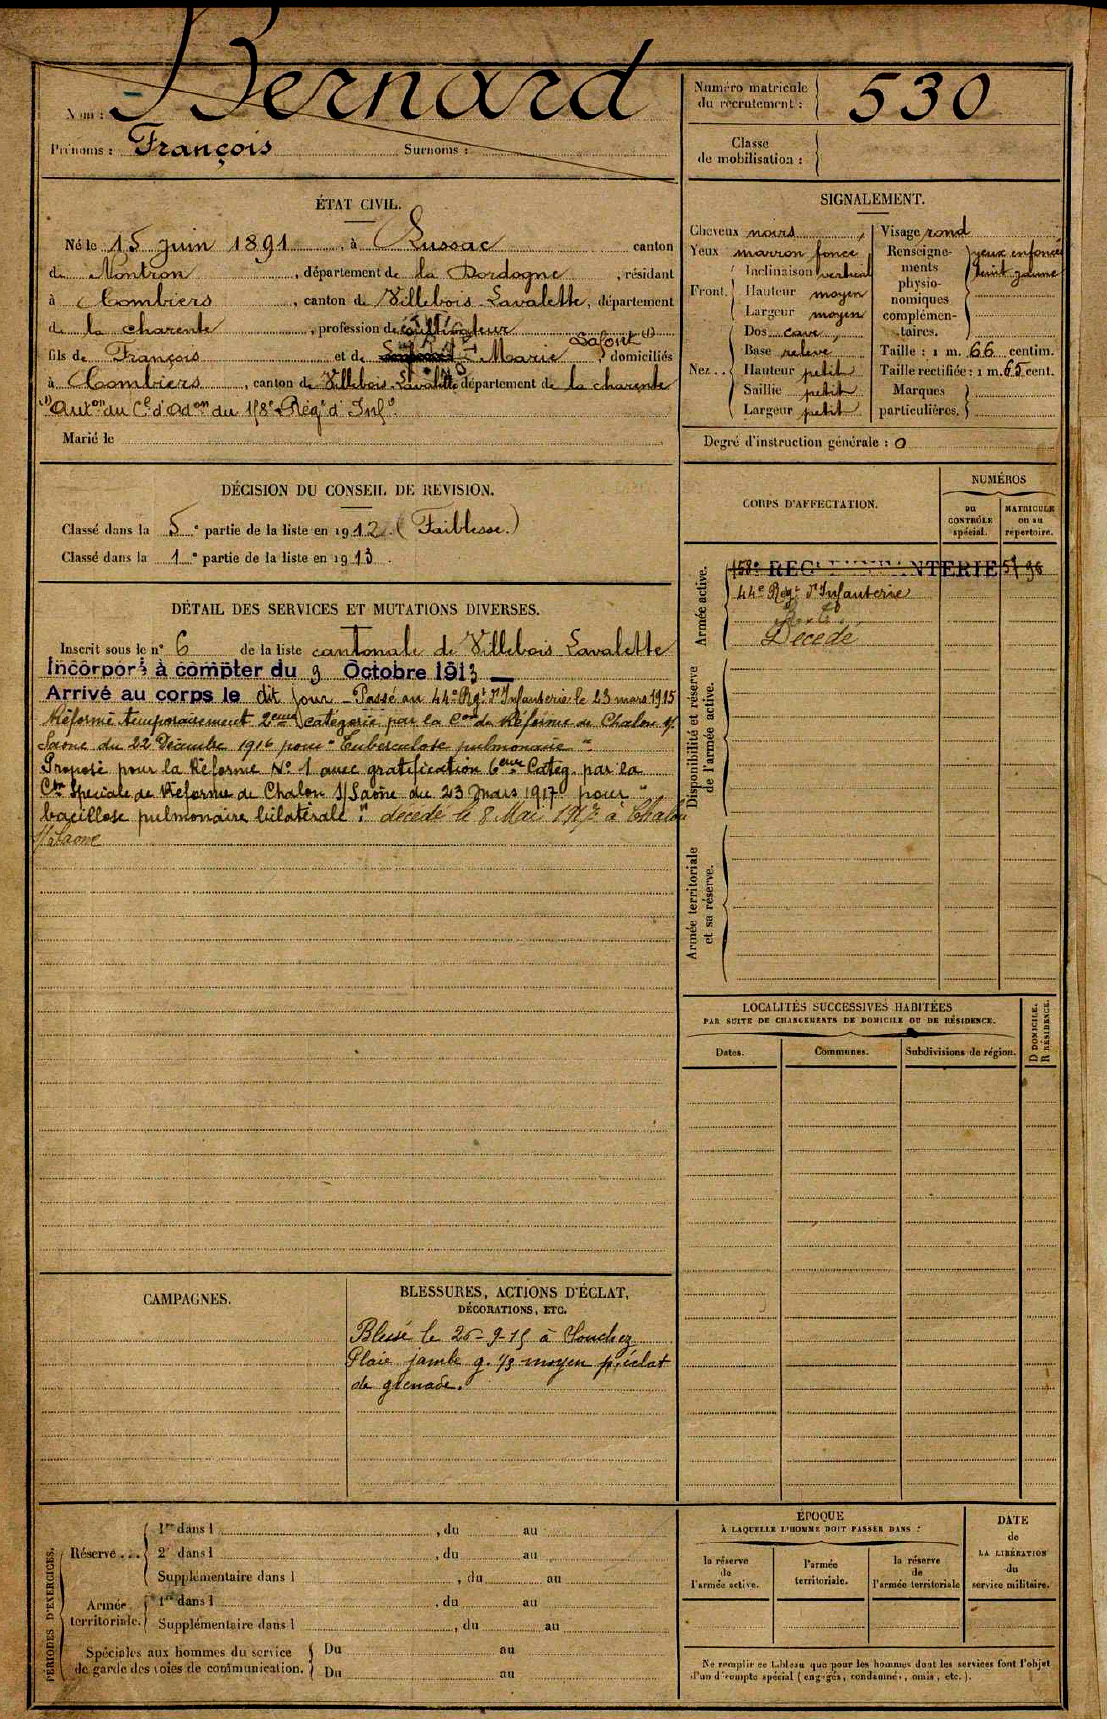 Nom : Bernard
Prénoms : François Surnoms :
Numéro matricule
du recrutement : 530
Classe
de mobilisation :
ÉTAT CIVIL.
Né le 15 juin 1891, à Lussac canton
de Nontron, département de la Dordogne, résidant
à Combiers, canton de Villebois-Lavalette, département
de la charente, profession de cultivateur
fils de François et de Lafont (1) Marie domiciliés
à Combiers, canton de Villebois-Lavalette département de la charente
(1) Auton du Cl d'Adon du 158e Régt d'Infie
Marié le
SIGNALEMENT.
Cheveux noirs,
Yeux marron foncé,
Front. Inclinaison vertical
Hauteur moyen
Largeur moyen
Nez.. Dos cave,
Base relevé
Hauteur petit
Saillie petit
Largeur petit
Visage rond
Renseigne-
ments
physio-
nomiques
complémen-
taires.
yeux enfoncés
teint jaune
Taille : 1 m. 66 centim.
Taille rectifiée : 1 m. 65 cent.
Marques
particulières.
Degré d'instruction générale : 0
DÉCISION DU CONSEIL DE REVISION.
Classé dans la 5e partie de la liste en 1912. (Faiblesse.)
Classé dans la 1e partie de la liste en 1913.
CORPS D'AFFECTATION.
NUMÉROS
DU
CONTRÔLE
spécial.
MATRICULE
ou au
répertoire.
Armée active.
158e REGt D'INFANTERIE
44e Régt d'Infanterie
Décédé
Disponibilité et réserve
de l'armée active.
Armée territoriale
et sa réserve.
DÉTAIL DES SERVICES ET MUTATIONS DIVERSES.
Inscrit sous le n° 6 de la liste cantonale de Villebois Lavalette
Incorporé à compter du 9 Octobre 1913
Arrivé au corps le dit jour - Passé au 44e Rgt d'Infanterie le 23 mars 1915
Réformé temporairement 2eme catégorie par la Con de Réforme de Chalon s/
Saone du 22 Décembre 1916 pour "Tuberculose pulmonaire"
Proposé pour la Réforme N° 1 avec gratification 6eme Catég. par la
Con Spéciale de Réforme de Chalon S/Saône du 23 mars 1917 pour "
bacillose pulmonaire bilatérale". décédé le 8 Mai 1917 à Chalon
s/Saone
LOCALITÉS SUCCESSIVES HABITÉES
PAR SUITE DE CHANGEMENTS DE DOMICILE OU DE RÉSIDENCE.
Dates.
Communes.
Subdivisions de région.
D DOMICILE.
R RÉSIDENCE.
CAMPAGNES.
BLESSURES, ACTIONS D'ÉCLAT,
DÉCORATIONS, ETC.
Blessé le 26-9-15 à Souchez
Plaie jambe g. 1/3 moyen p. éclat
de grenade.
PÉRIODES D'EXERCICES.
Réserve...
1re dans l , du au
2e dans l , du au
Supplémentaire dans l , du au
Armée
territoriale.
1re dans l , du au
Supplémentaire dans l , du au
Spéciales aux hommes du service
de garde des voies de communication.
Du au
Du au
ÉPOQUE
À LAQUELLE L'HOMME DOIT PASSER DANS :
la réserve
de
l'armée active.
l'armée
territoriale.
la réserve
de
l'armée territoriale
DATE
de
LA LIBÉRATION
du
service militaire.
Ne remplir ce tableau que pour les hommes dont les services font l'objet
d'un décompte spécial (engagés, condamnés, omis, etc.).